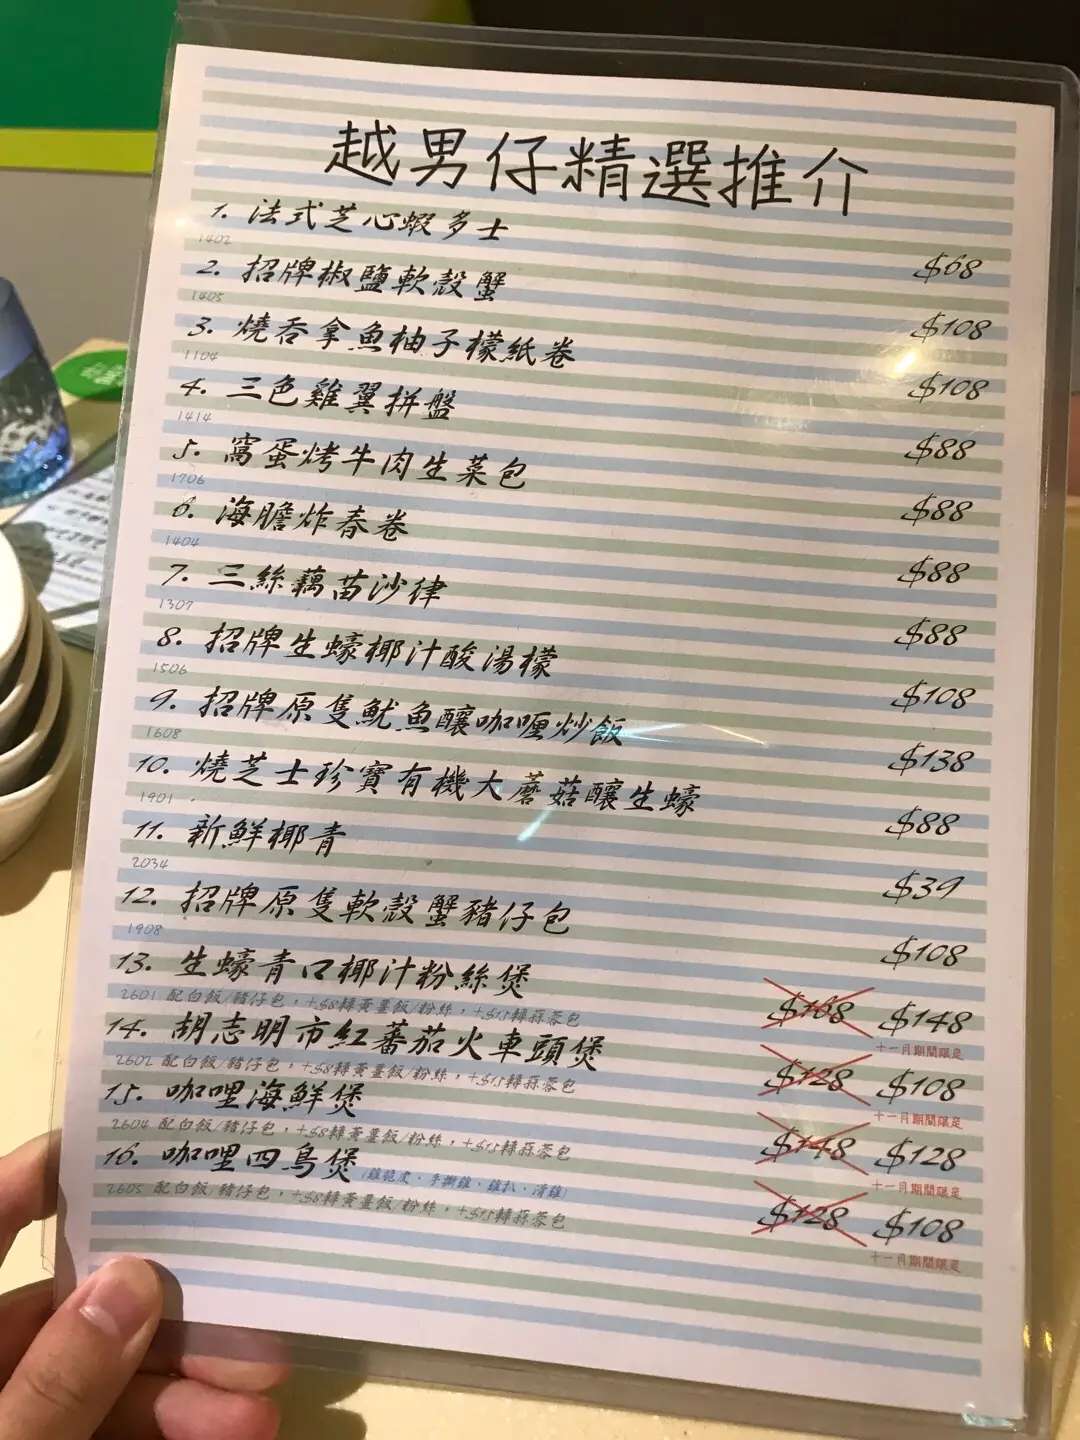 越男仔精選推介
1. 法式芝心蝦多士 $68
1402
2. 招牌椒鹽軟殼蟹 $108
1405
3. 燒吞拿魚柚子檬紙卷 $108
1104
4. 三色雞翼拼盤 $88
1414
5. 窩蛋烤牛肉生菜包 $88
1706
6. 海膽炸春卷 $88
1404
7. 三絲藕苗沙律 $88
1307
8. 招牌生蠔椰汁酸湯檬 $108
1506
9. 招牌原隻魷魚釀咖喱炒飯 $138
1608
10. 燒芝士珍寶有機大蘑菇釀生蠔 $88
1901
11. 新鮮椰青 $39
2034
12. 招牌原隻軟殼蟹豬仔包 $108
1908
13. 生蠔青口椰汁粉絲煲 $168 $148
2601 配白飯/豬仔包，+$8轉黃薑飯/粉絲，+$15轉蒜蓉包 十一月期間限定
14. 胡志明市紅蕃茄火車頭煲 $128 $108
2602 配白飯/豬仔包，+$8轉黃薑飯/粉絲，+$15轉蒜蓉包 十一月期間限定
15. 咖哩海鮮煲 $148 $128
2604 配白飯/豬仔包，+$8轉黃薑飯/粉絲，+$15轉蒜蓉包 十一月期間限定
16. 咖哩四鳥煲 (雞脆皮、手撕雞、雞扒、滑雞) $128 $108
2605 配白飯/豬仔包，+$8轉黃薑飯/粉絲，+$15轉蒜蓉包 十一月期間限定